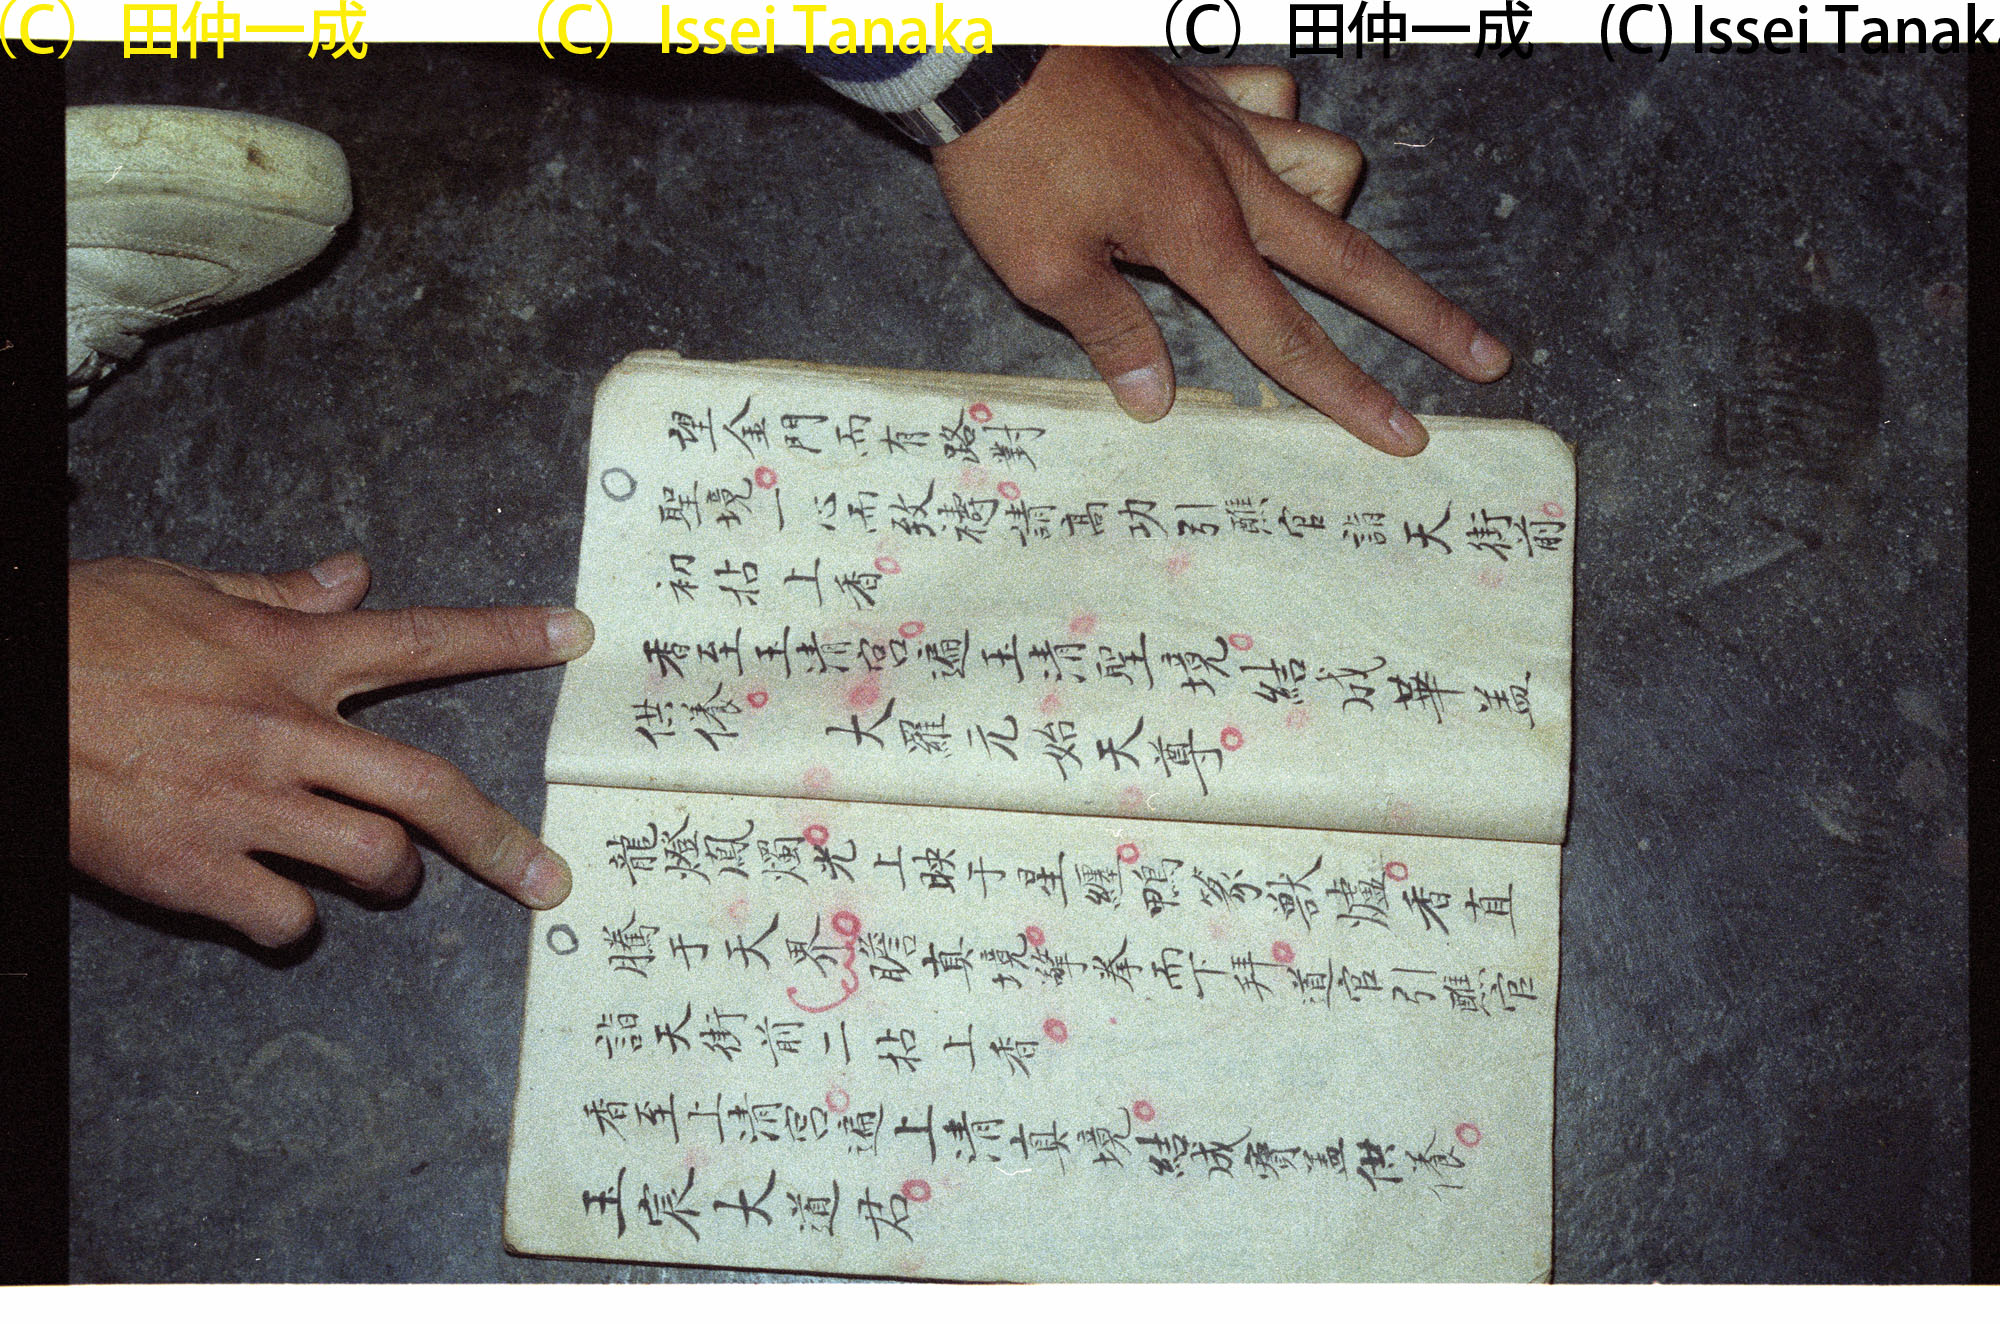 (C) 田仲一成 (C) Issei Tanaka (C) 田仲一成 (C) Issei Tanak
望金門而有路對
聖境一心而致禱請高功引醮官詣天街前
初拈上香
香至玉清宮遍玉清聖境結成華盖
供養 大羅元始天尊
龍燈鳳燭光上映于星纏鴨篆獸爐香直
騰于天界瞻真境擎拳而下拜道官引醮官
詣天街前二拈上香
香至上清宮遍上清真境結成寶盖供養
玉宸大道君